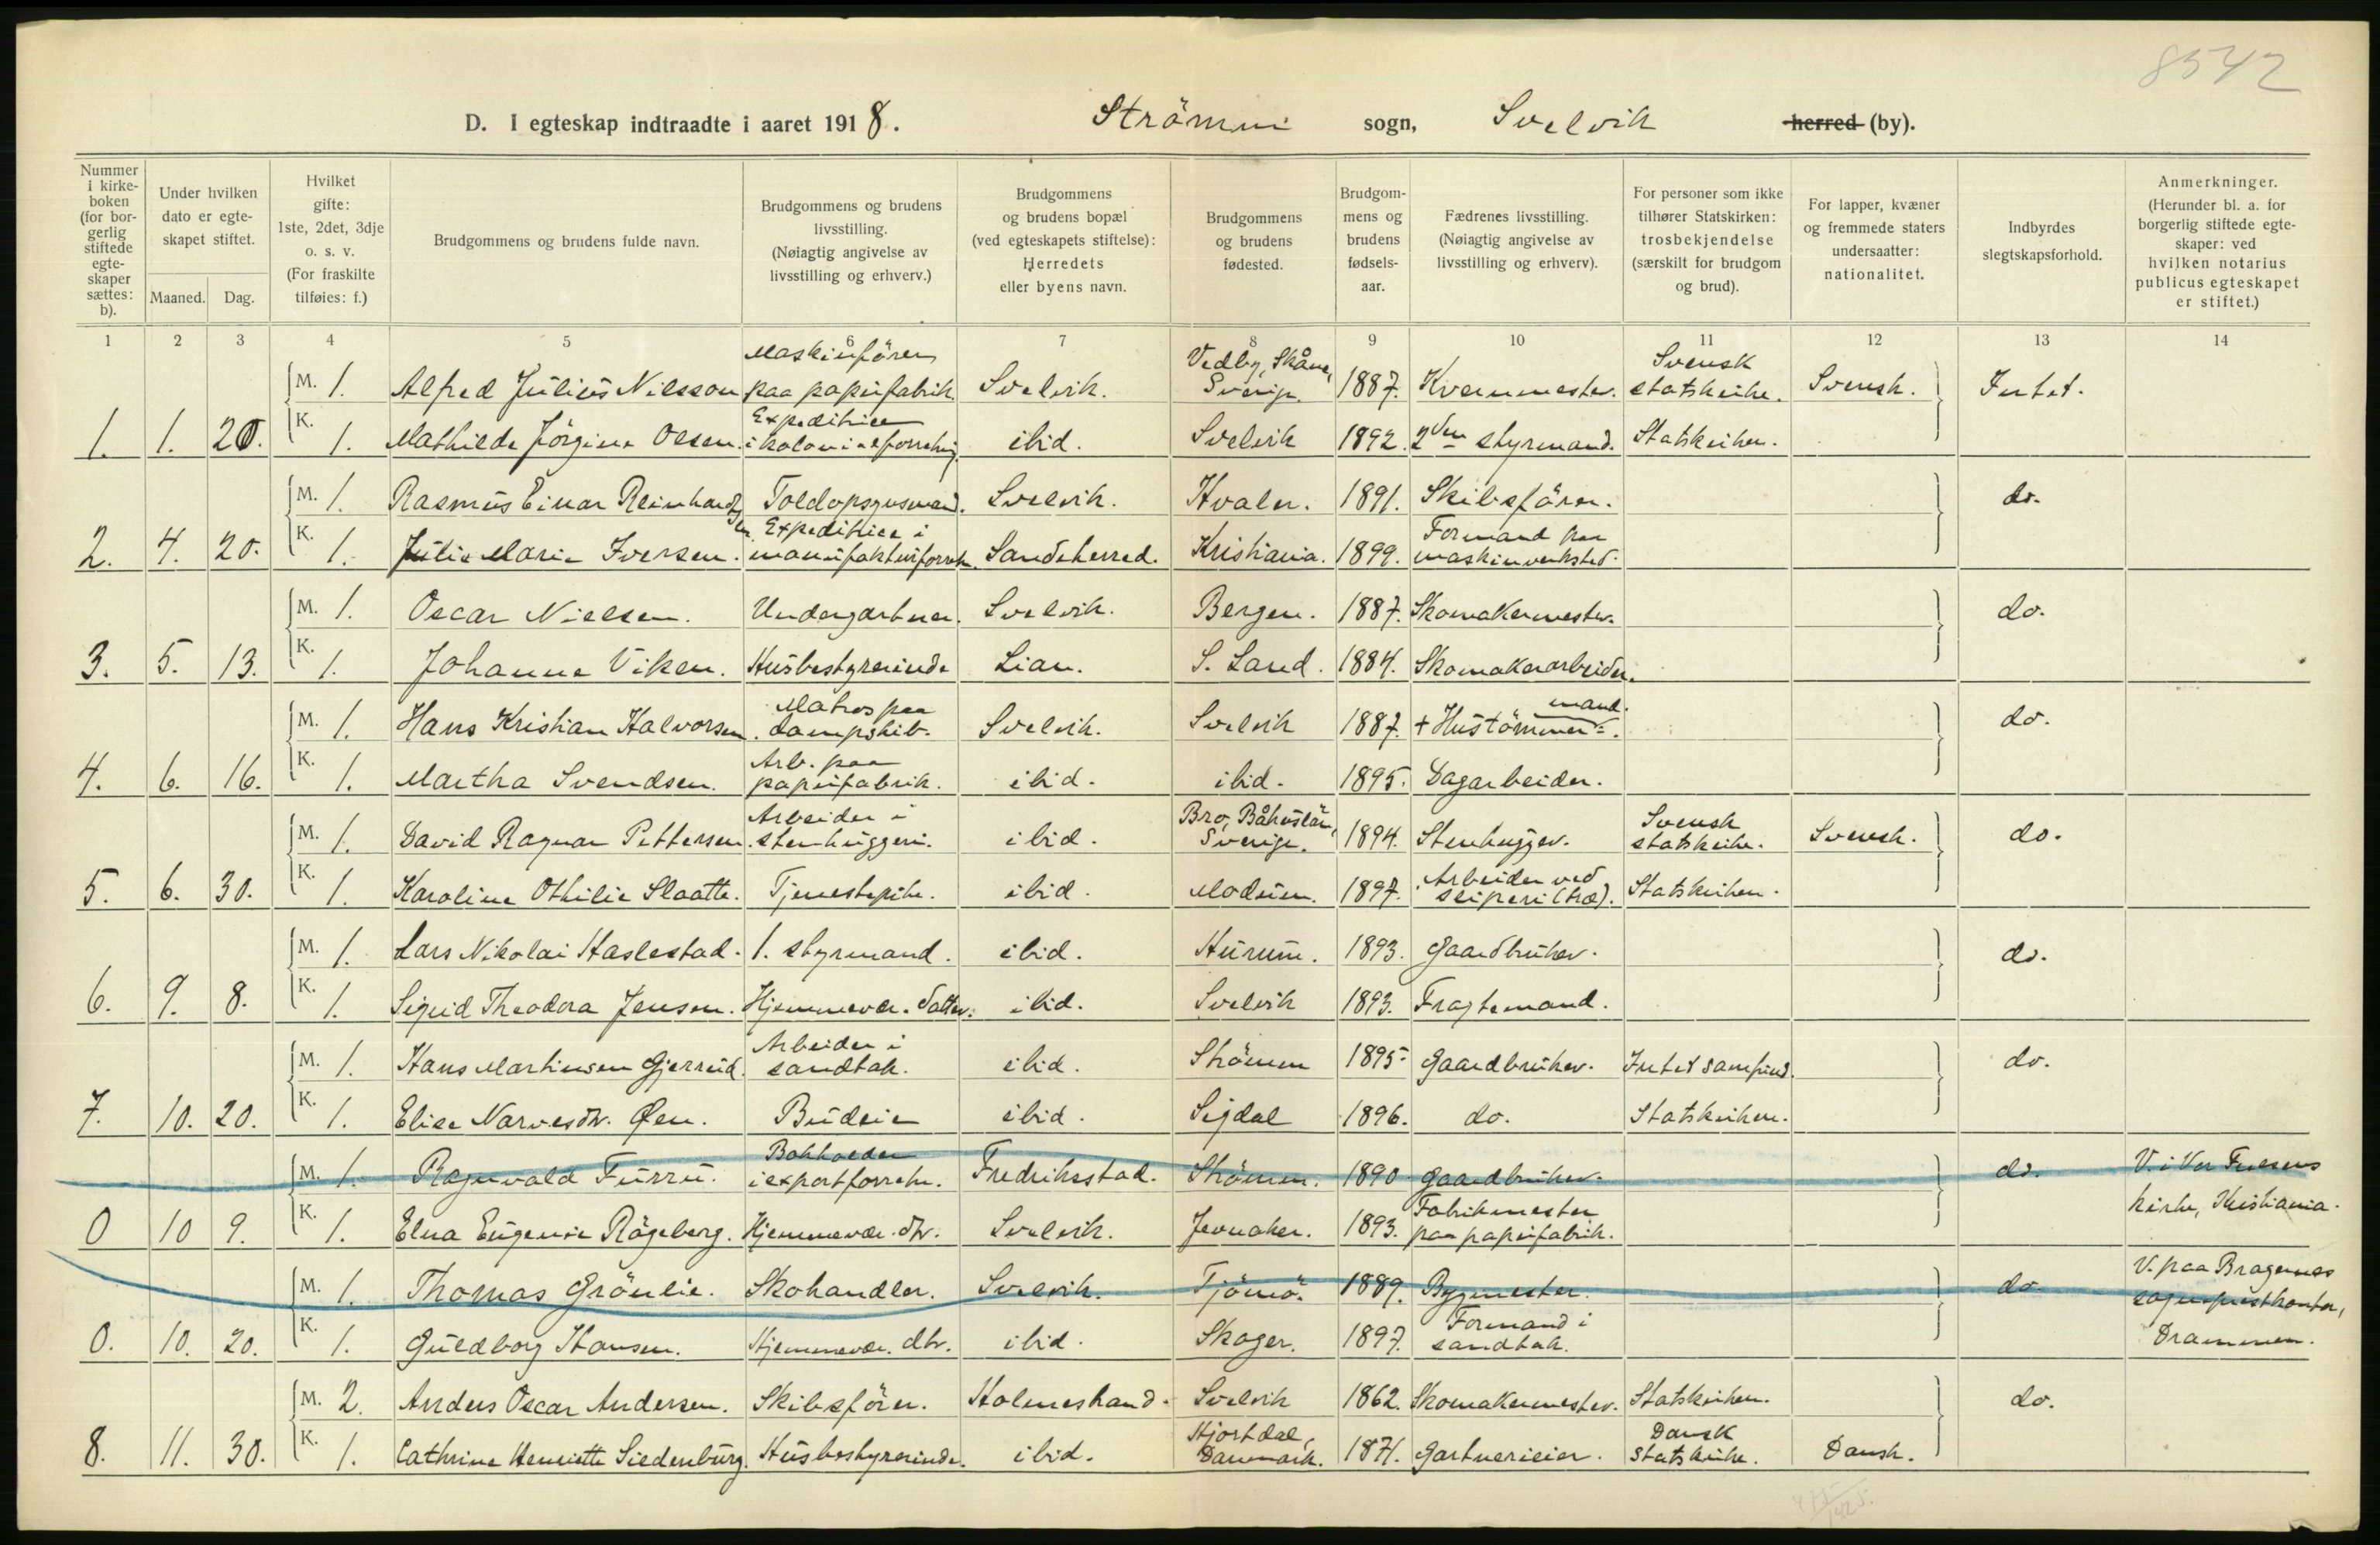 8542
D. I egteskap indtraadte i aaret 1918. Strömm sogn, Svelvik herred (by).
Nummer i kirkeboken (for borgerlig stiftede egteskaper sættes: b).
Under hvilken dato er egteskapet stiftet.
Maaned. Dag.
Hvilket gifte: 1ste, 2det, 3dje o. s. v. (For fraskilte tilføies: f.)
Brudgommens og brudens fulde navn.
Brudgommens og brudens livsstilling. (Nøiagtig angivelse av livsstilling og erhverv.)
Brudgommens og brudens bopæl (ved egteskapets stiftelse): Herredets eller byens navn.
Brudgommens og brudens fødested.
Brudgommens og brudens fødselsaar.
Fædrenes livsstilling. (Nøiagtig angivelse av livsstilling og erhverv).
For personer som ikke tilhører Statskirken: trosbekjendelse (særskilt for brudgom og brud).
For lapper, kvæner og fremmede staters undersaatter: nationalitet.
Indbyrdes slegtskapsforhold.
Anmerkninger. (Herunder bl. a. for borgerlig stiftede egteskaper: ved hvilken notarius publicus egteskapet er stiftet.)
1 2 3 4 5 6 7 8 9 10 11 12 13 14
M. 1. Alfred Julius Nilsson Maskinfører paa papirfabrik. Svelvik. Vedby, Skåne, Sverige. 1887. Kvernmester. Svensk statskirke. Svensk. Intet.
1. 1. 20. K. 1. Mathilde Jørgine Olsen. Expeditrice i kolonialforretng. ibid. Svelvik 1892. 2den styrmand. Statskirken.
M. 1. Rasmus Einar Reinhardtsen Toldopsynsmand. Svelvik. Hvaler. 1891. Skibsfører. do.
2. 4. 20. K. 1. Julie Marie Iversen. Expeditrice i manufakturforretn. Sandeherred. Kristiania. 1899. Formand paa maskinverksted.
M. 1. Oscar Nielsen. Undergartner. Svelvik. Bergen. 1887. Skomakermester. do.
3. 5. 13. K. 1. Johanne Viken. Husbestyrerinde Lian. S. Land. 1884. Skomakerarbeider.
M. 1. Hans Kristian Halvorsen. Matros paa dampskib. Svelvik. Svelvik 1887. + Hustömmermand. do.
4. 6. 16. K. 1. Martha Svendsen. Arb. paa papirfabrik. ibid. ibid. 1895. Dagarbeider.
M. 1. David Ragnar Pettersen. Arbeider i stenhuggeri. ibid. Bro, Båhuslän, Sverige. 1894. Stenhugger. Svensk statskirke. Svensk. do.
5. 6. 30. K. 1. Karoline Othilie Slaatte. Tjenestepike. ibid. Modum. 1897. Arbeider ved sliperi (træ). Statskirken.
M. 1. Lars Nikolai Haslestad. 1. styrmand. ibid. Hurum. 1893. Gaardbruker. do.
6. 9. 8. K. 1. Sigrid Theodora Jensen. Hjemmevær. datter. ibid. Svelvik 1893. Fragtemand.
M. 1. Hans Martinsen Gjerrud. Arbeider i sandtak. ibid. Strömm 1895. Gaardbruker. Intet samfund. do.
7. 10. 20. K. 1. Elise Narvesdtr. Øen. Budeie ibid. Sigdal 1896. do. Statskirken.
M. 1. Ragnvald Furru. Bokholder i exportforretn. Fredriksstad. Strömm. 1890 Gaardbruker. do. V. i Vor Frelsers
0 10 9. K. 1. Elna Eugenie Rögeberg. Hjemmevær. dtr. Svelvik. Jevnaker. 1893. Fabrikmester paa papirfabrik. kirke, Kristiania.
M. 1. Thomas Grönlie. Skohandler. Svelvik. Tjömö. 1889. Bygmester. do. V. paa Bragernes sogneprestkontor,
0. 10. 20. K. 1. Guldborg Hansen. Hjemmevær. dtr. ibid. Skoger. 1897. Formand i sandtak. Drammen.
M. 2. Anders Oscar Andersen. Skibsfører. Holmestrand. Svelvik 1862. Skomakermester. Statskirken. do.
8. 11. 30. K. 1. Cathrine Henriette Siedenburg. Husbestyrerinde. ibid. Hjortdal, Danmark. 1871. Gartnerieier. Dansk statskirke. Dansk.